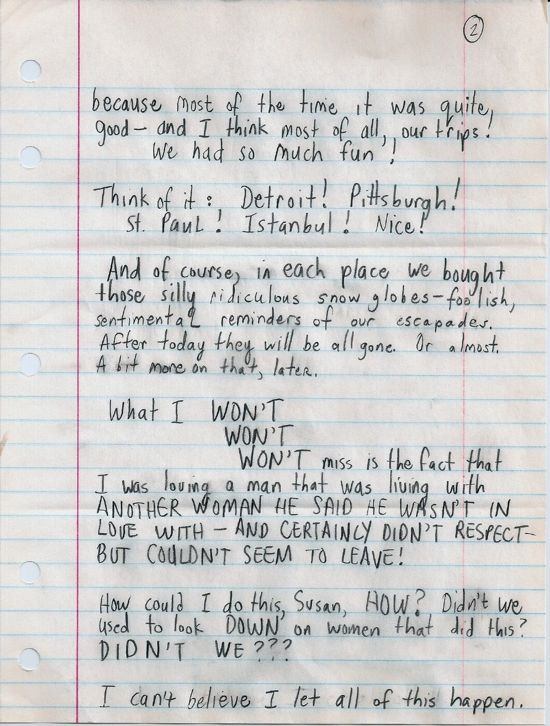 2
because most of the time it was quite,
good - and I think most of all, our trips!
We had so much fun!
Think of it: Detroit! Pittsburgh!
St. Paul! Istanbul! Nice!
And of course, in each place we bought
those silly ridiculous snow globes - foolish,
sentimental reminders of our escapades.
After today they will be all gone. Or almost.
A bit more on that, later.
What I WON'T
WON'T
WON'T miss is the fact that
I was loving a man that was living with
ANOTHER WOMAN HE SAID HE WASN'T IN
LOVE WITH - AND CERTAINLY DIDN'T RESPECT -
BUT COULDN'T SEEM TO LEAVE!
How could I do this, Susan, HOW? Didn't we
used to look DOWN on women that did this?
DIDN'T WE???
I can't believe I let all of this happen.